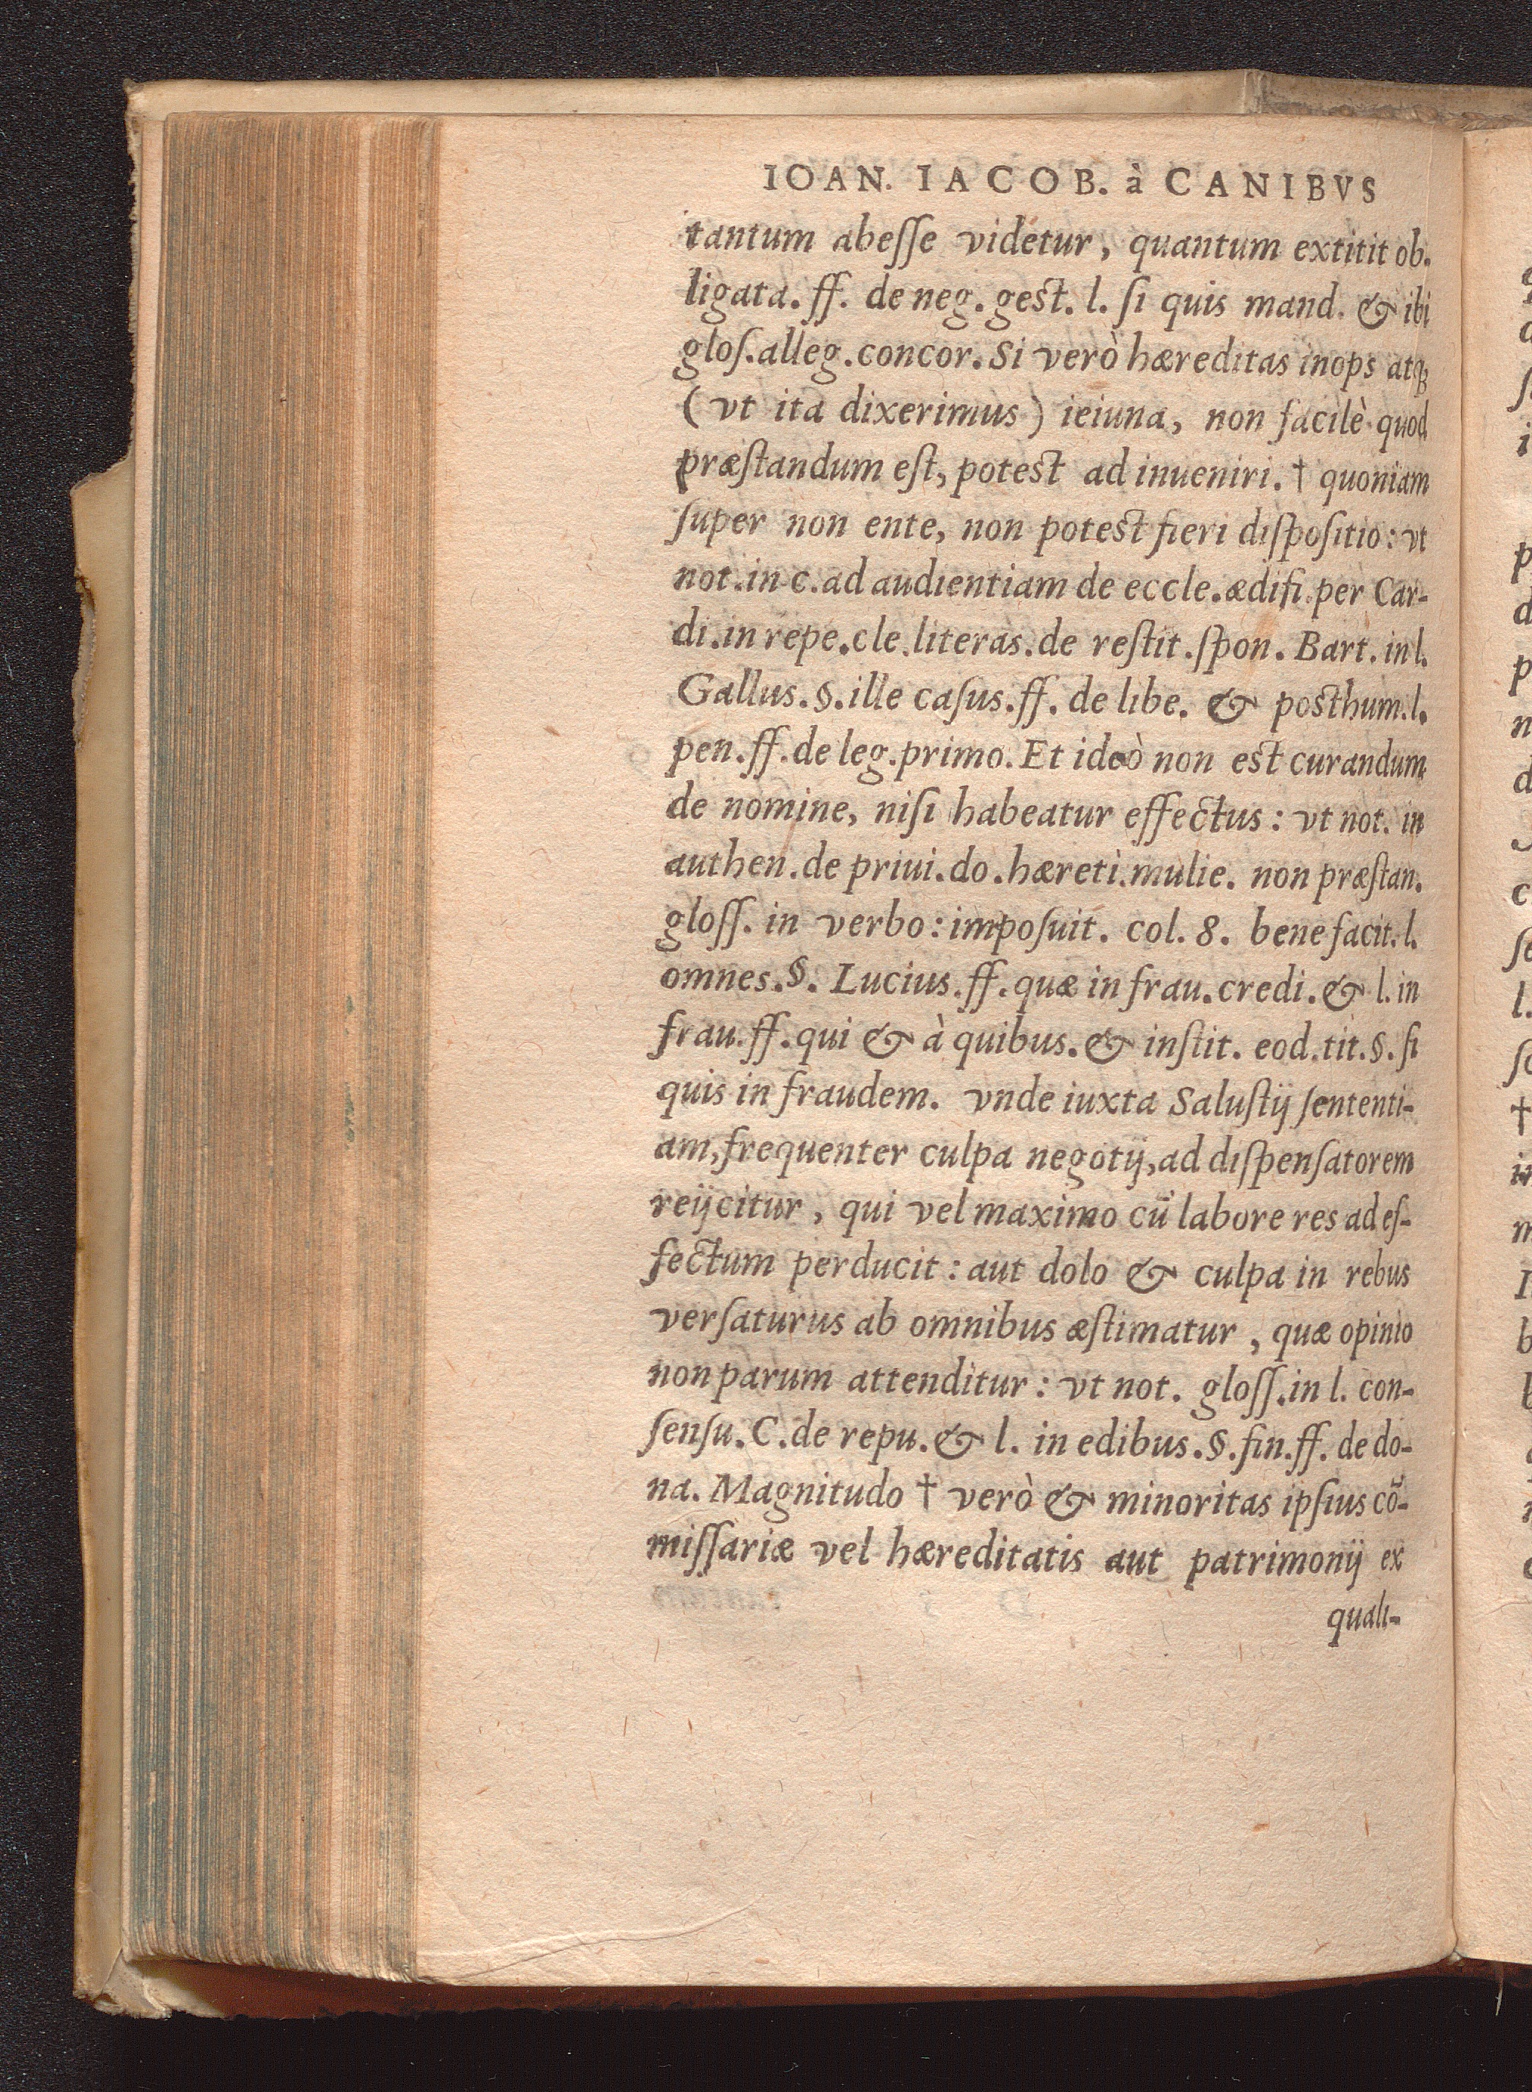 IOAN. IACOB. à CANIBVS
tantum abeſſe videtur, quantum extitit ob.
ligata. ff. de neg. geſt. l. ſi quis mand. & ibi
gloſ. alleg. concor. Si verò hæreditas inops atq́;
(vt ita dixerimus) ieiuna, non facilè quod
præſtandum eſt, poteſt ad inueniri. † quoniam
ſuper non ente, non poteſt fieri diſpoſitio: vt
not. in c. ad audientiam de eccle. ædifi. per Car-
di. in repe. cle. literas. de reſtit. ſpon. Bart. in l.
Gallus. §. ille caſus. ff. de libe. & poſthum. l.
pen. ff. de leg. primo. Et ideò non eſt curandum
de nomine, niſi habeatur effectus: vt not. in
authen. de priui. do. hæreti. mulie. non præſtan.
gloſſ. in verbo: impoſuit. col. 8. bene facit. l.
omnes. §. Lucius. ff. quæ in frau. credi. & l. in
frau. ff. qui & à quibus. & inſtit. eod. tit. §. ſi
quis in fraudem. vnde iuxta Saluſtij ſententi-
am, frequenter culpa negotij, ad diſpenſatorem
reijcitur, qui vel maximo cũ labore res ad eſ-
fectum perducit: aut dolo & culpa in rebus
verſaturus ab omnibus æſtimatur, quæ opinio
non parum attenditur: vt not. gloſſ. in l. con-
ſenſu. C. de repu. & l. in edibus. §. fin. ff. de do-
na. Magnitudo † verò & minoritas ipſius cõ-
miſſariæ vel hæreditatis aut patrimonij ex
quali-